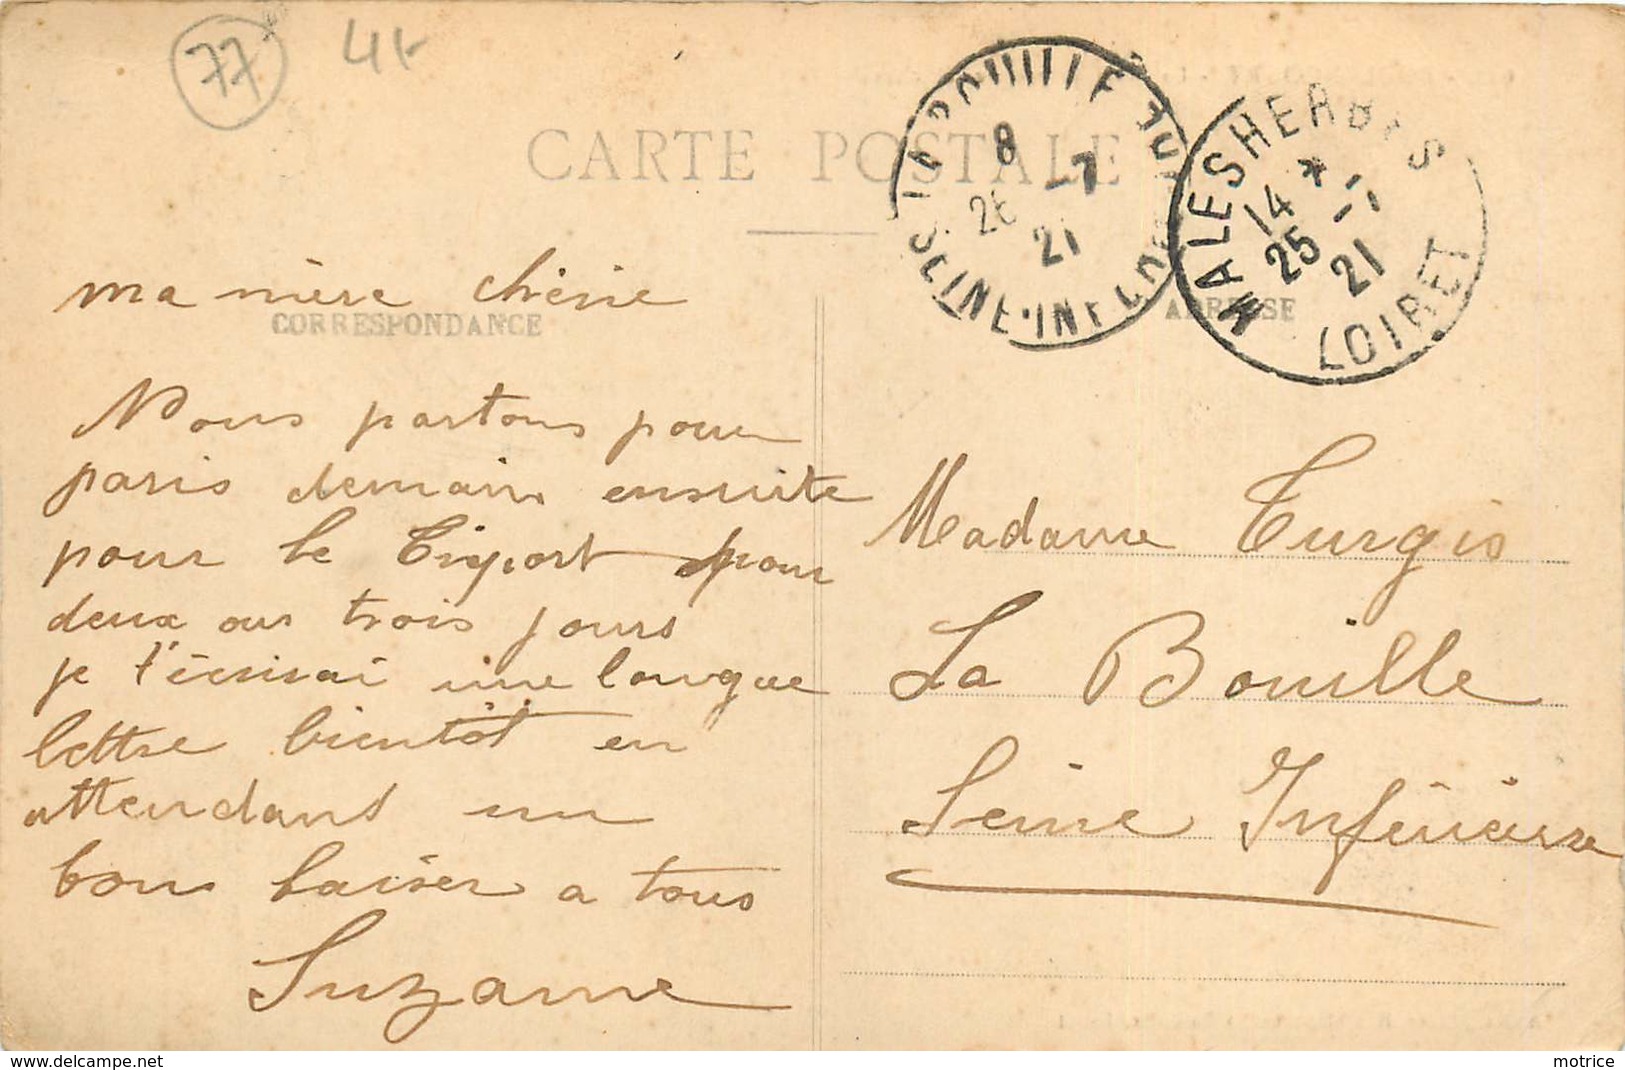 77 44
CARTE POSTALE
LA BOUILLE
8
26 -7
21
SEINE-INFÉRIEURE
MALESHERBES
14 *
25 -7
21
LOIRET
ma mère chérie
CORRESPONDANCE
ADRESSE
Nous partons pour
paris demain ensuite
pour le Tréport pour
deux ou trois jours
je t'écrirai une longue
lettre bientôt en
attendant un
bons baiser a tous
Suzanne
Madame Turgis
La Bouille
Seine Inférieure
www.delcampe.net
motrice